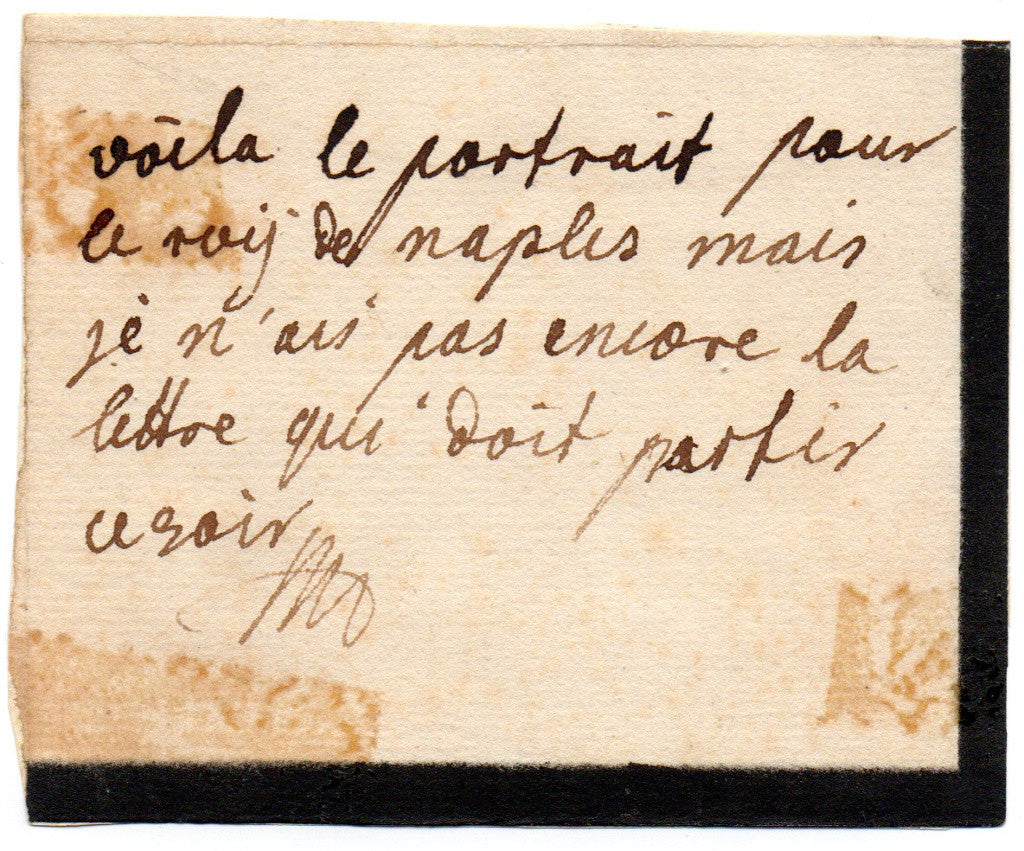 voila le portrait pour
le roij de naples mais
je n'ais pas encore la
lettre qui doit partir
ce soir